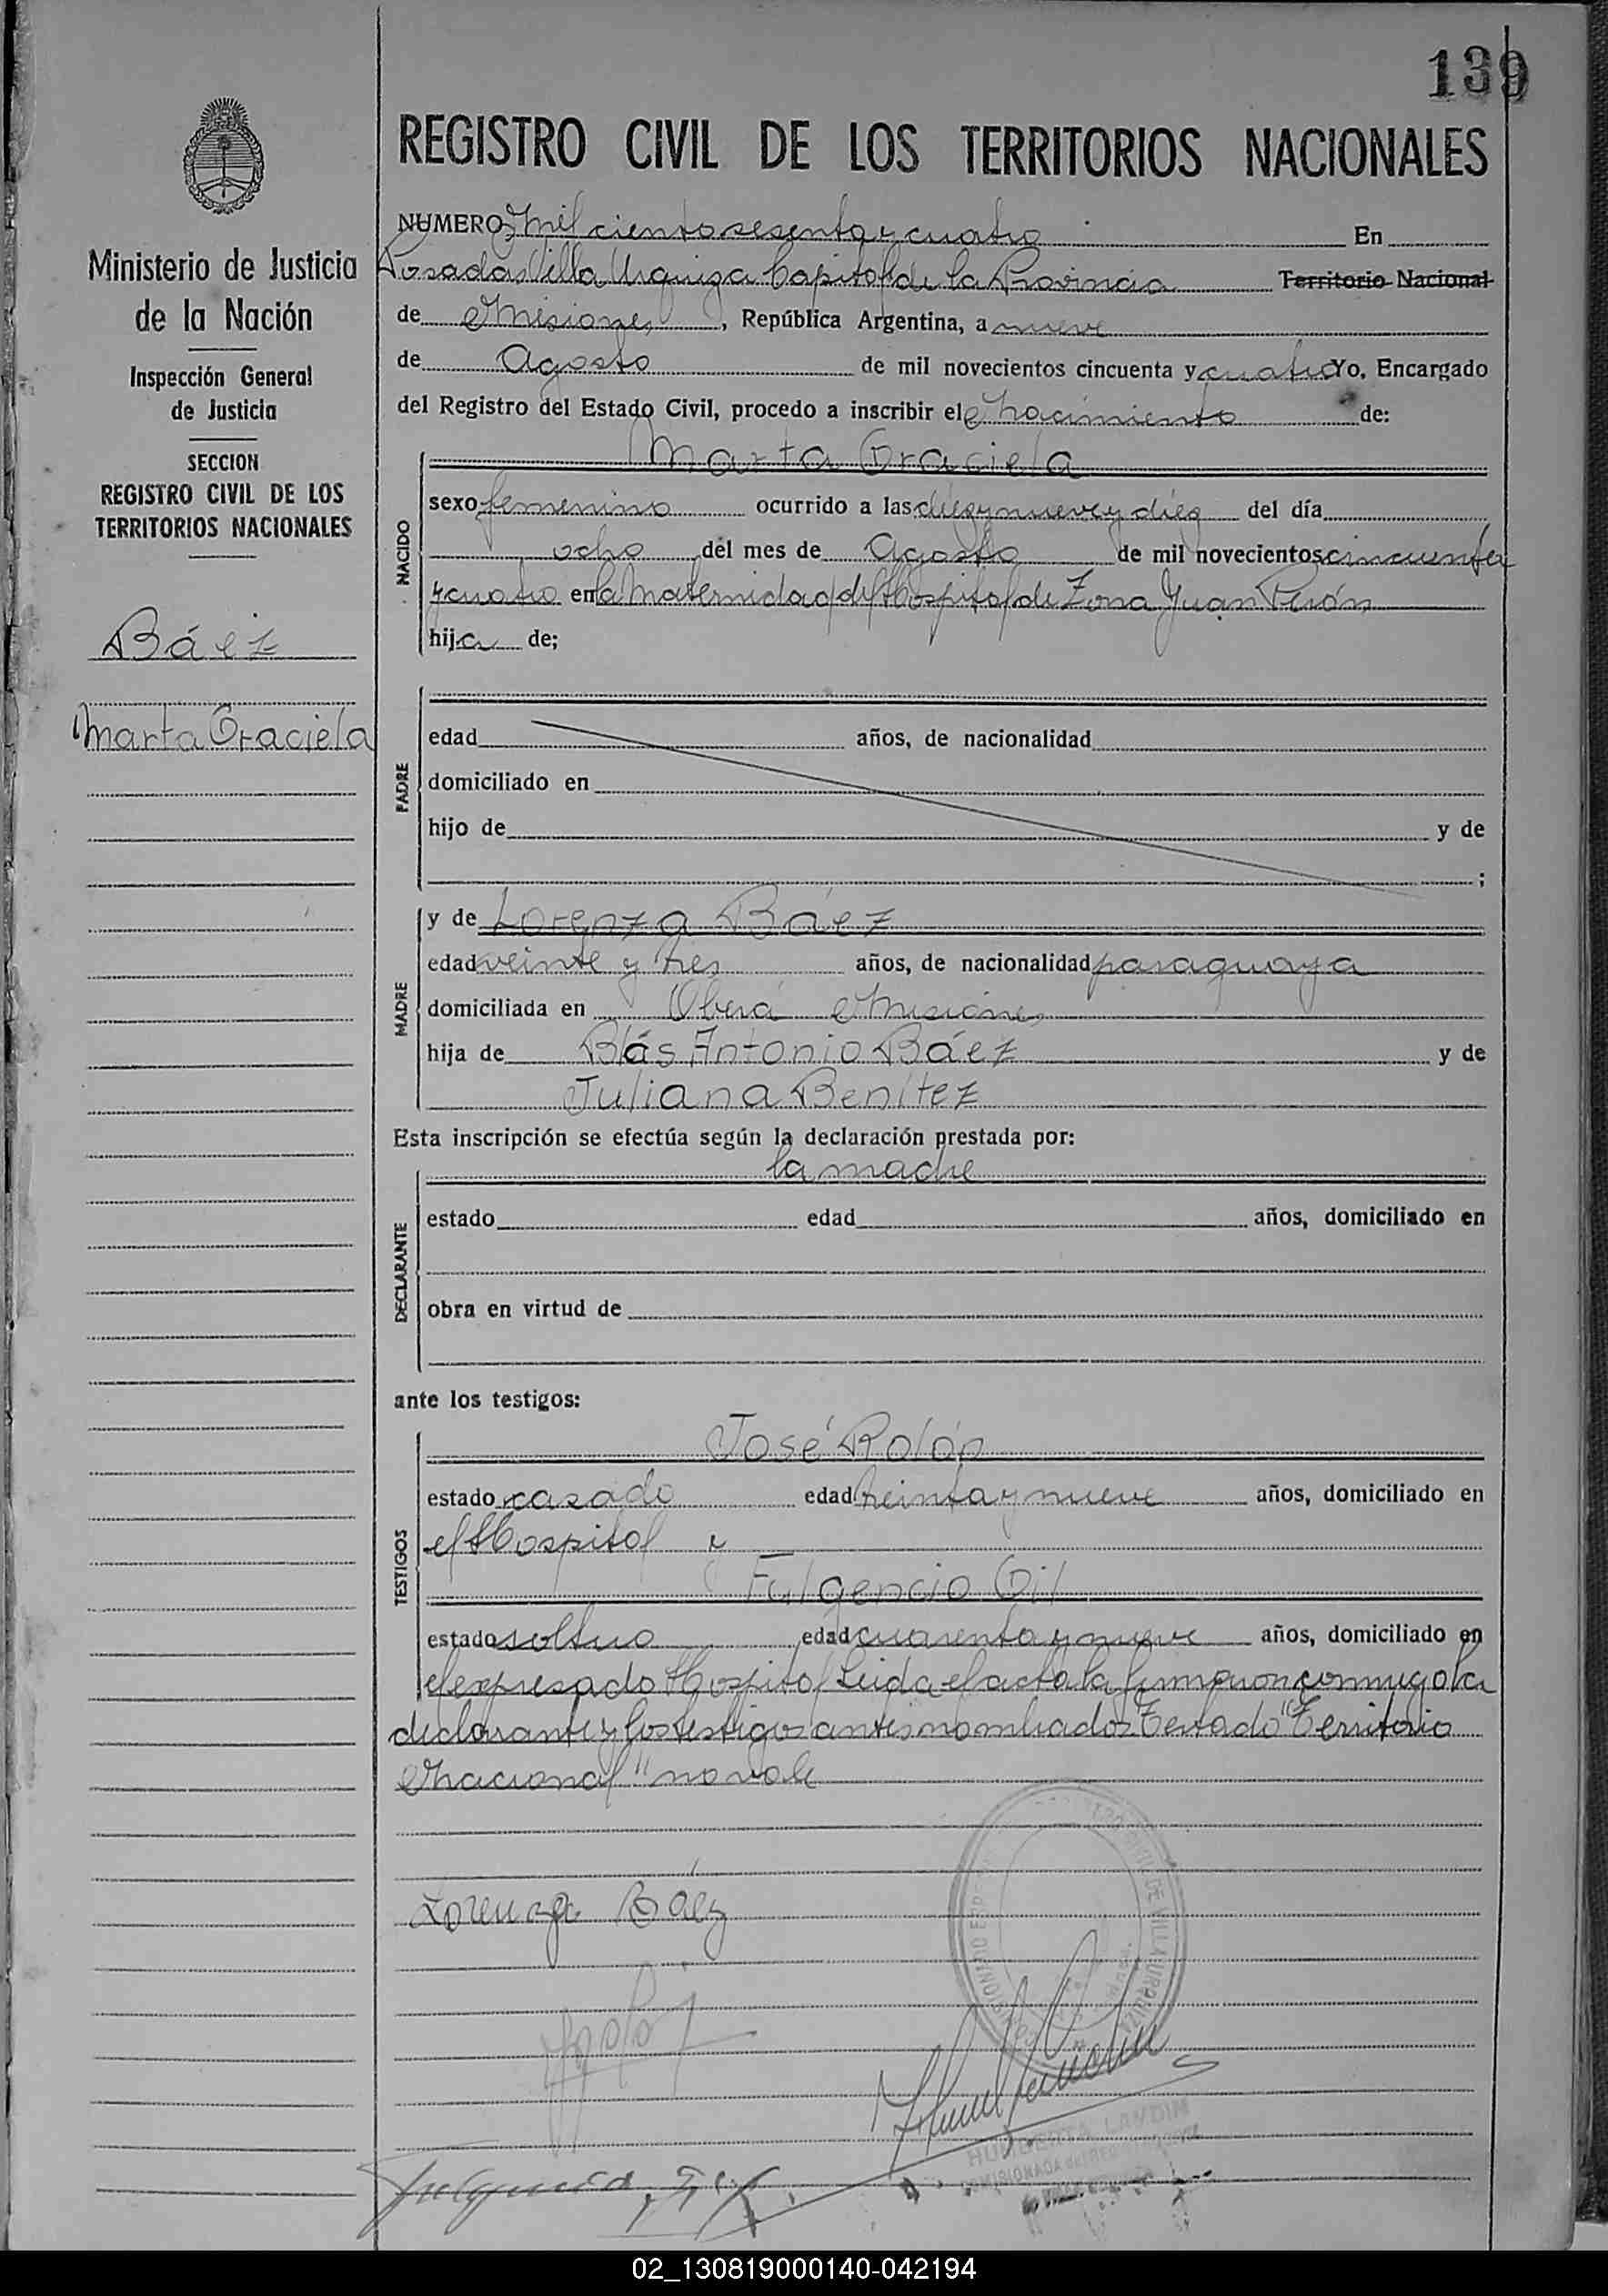 139
REGISTRO CIVIL DE LOS TERRITORIOS NACIONALES
Ministerio de Justicia
de la Nación
Inspección General
de Justicia
SECCION
REGISTRO CIVIL DE LOS
TERRITORIOS NACIONALES
Báez
Marta Graciela
NUMERO Mil ciento sesenta y cuatro En
Posadas Villa Urquiza Capital de la Provincia Territorio Nacional
de Misiones, República Argentina, a nueve
de Agosto de mil novecientos cincuenta y cuatro Yo, Encargado
del Registro del Estado Civil, procedo a inscribir el Nacimiento de:
Marta Graciela
NACIDO
sexo femenino ocurrido a las diez y nueve y diez del día
ocho del mes de Agosto de mil novecientos cincuenta
y cuatro en la Maternidad del Hospital de Zona Juan Perón
hija de;
PADRE
edad años, de nacionalidad
domiciliado en
hijo de y de
;
MADRE
y de Lorenza Báez
edad veinte y tres años, de nacionalidad paraguaya
domiciliada en Oberá Misiones
hija de Blás Antonio Báez y de
Juliana Benítez
Esta inscripción se efectúa según la declaración prestada por:
la madre
DECLARANTE
estado edad años, domiciliado en
obra en virtud de
ante los testigos:
José Rolón
TESTIGOS
estado casado edad treinta y nueve años, domiciliado en
el Hospital y
Fulgencio Gil
estado soltero edad cuarenta y nueve años, domiciliado en
el expresado Hospital Leida el acta la firmaron conmigo la
declarante y los testigos antes nombrados Testado "Territorio
Nacional" no vale
Lorenza Báez
DE VILLA URQUIZA
Fulgencio Gil
HUMBERTA LANDIN
02_130819000140-042194